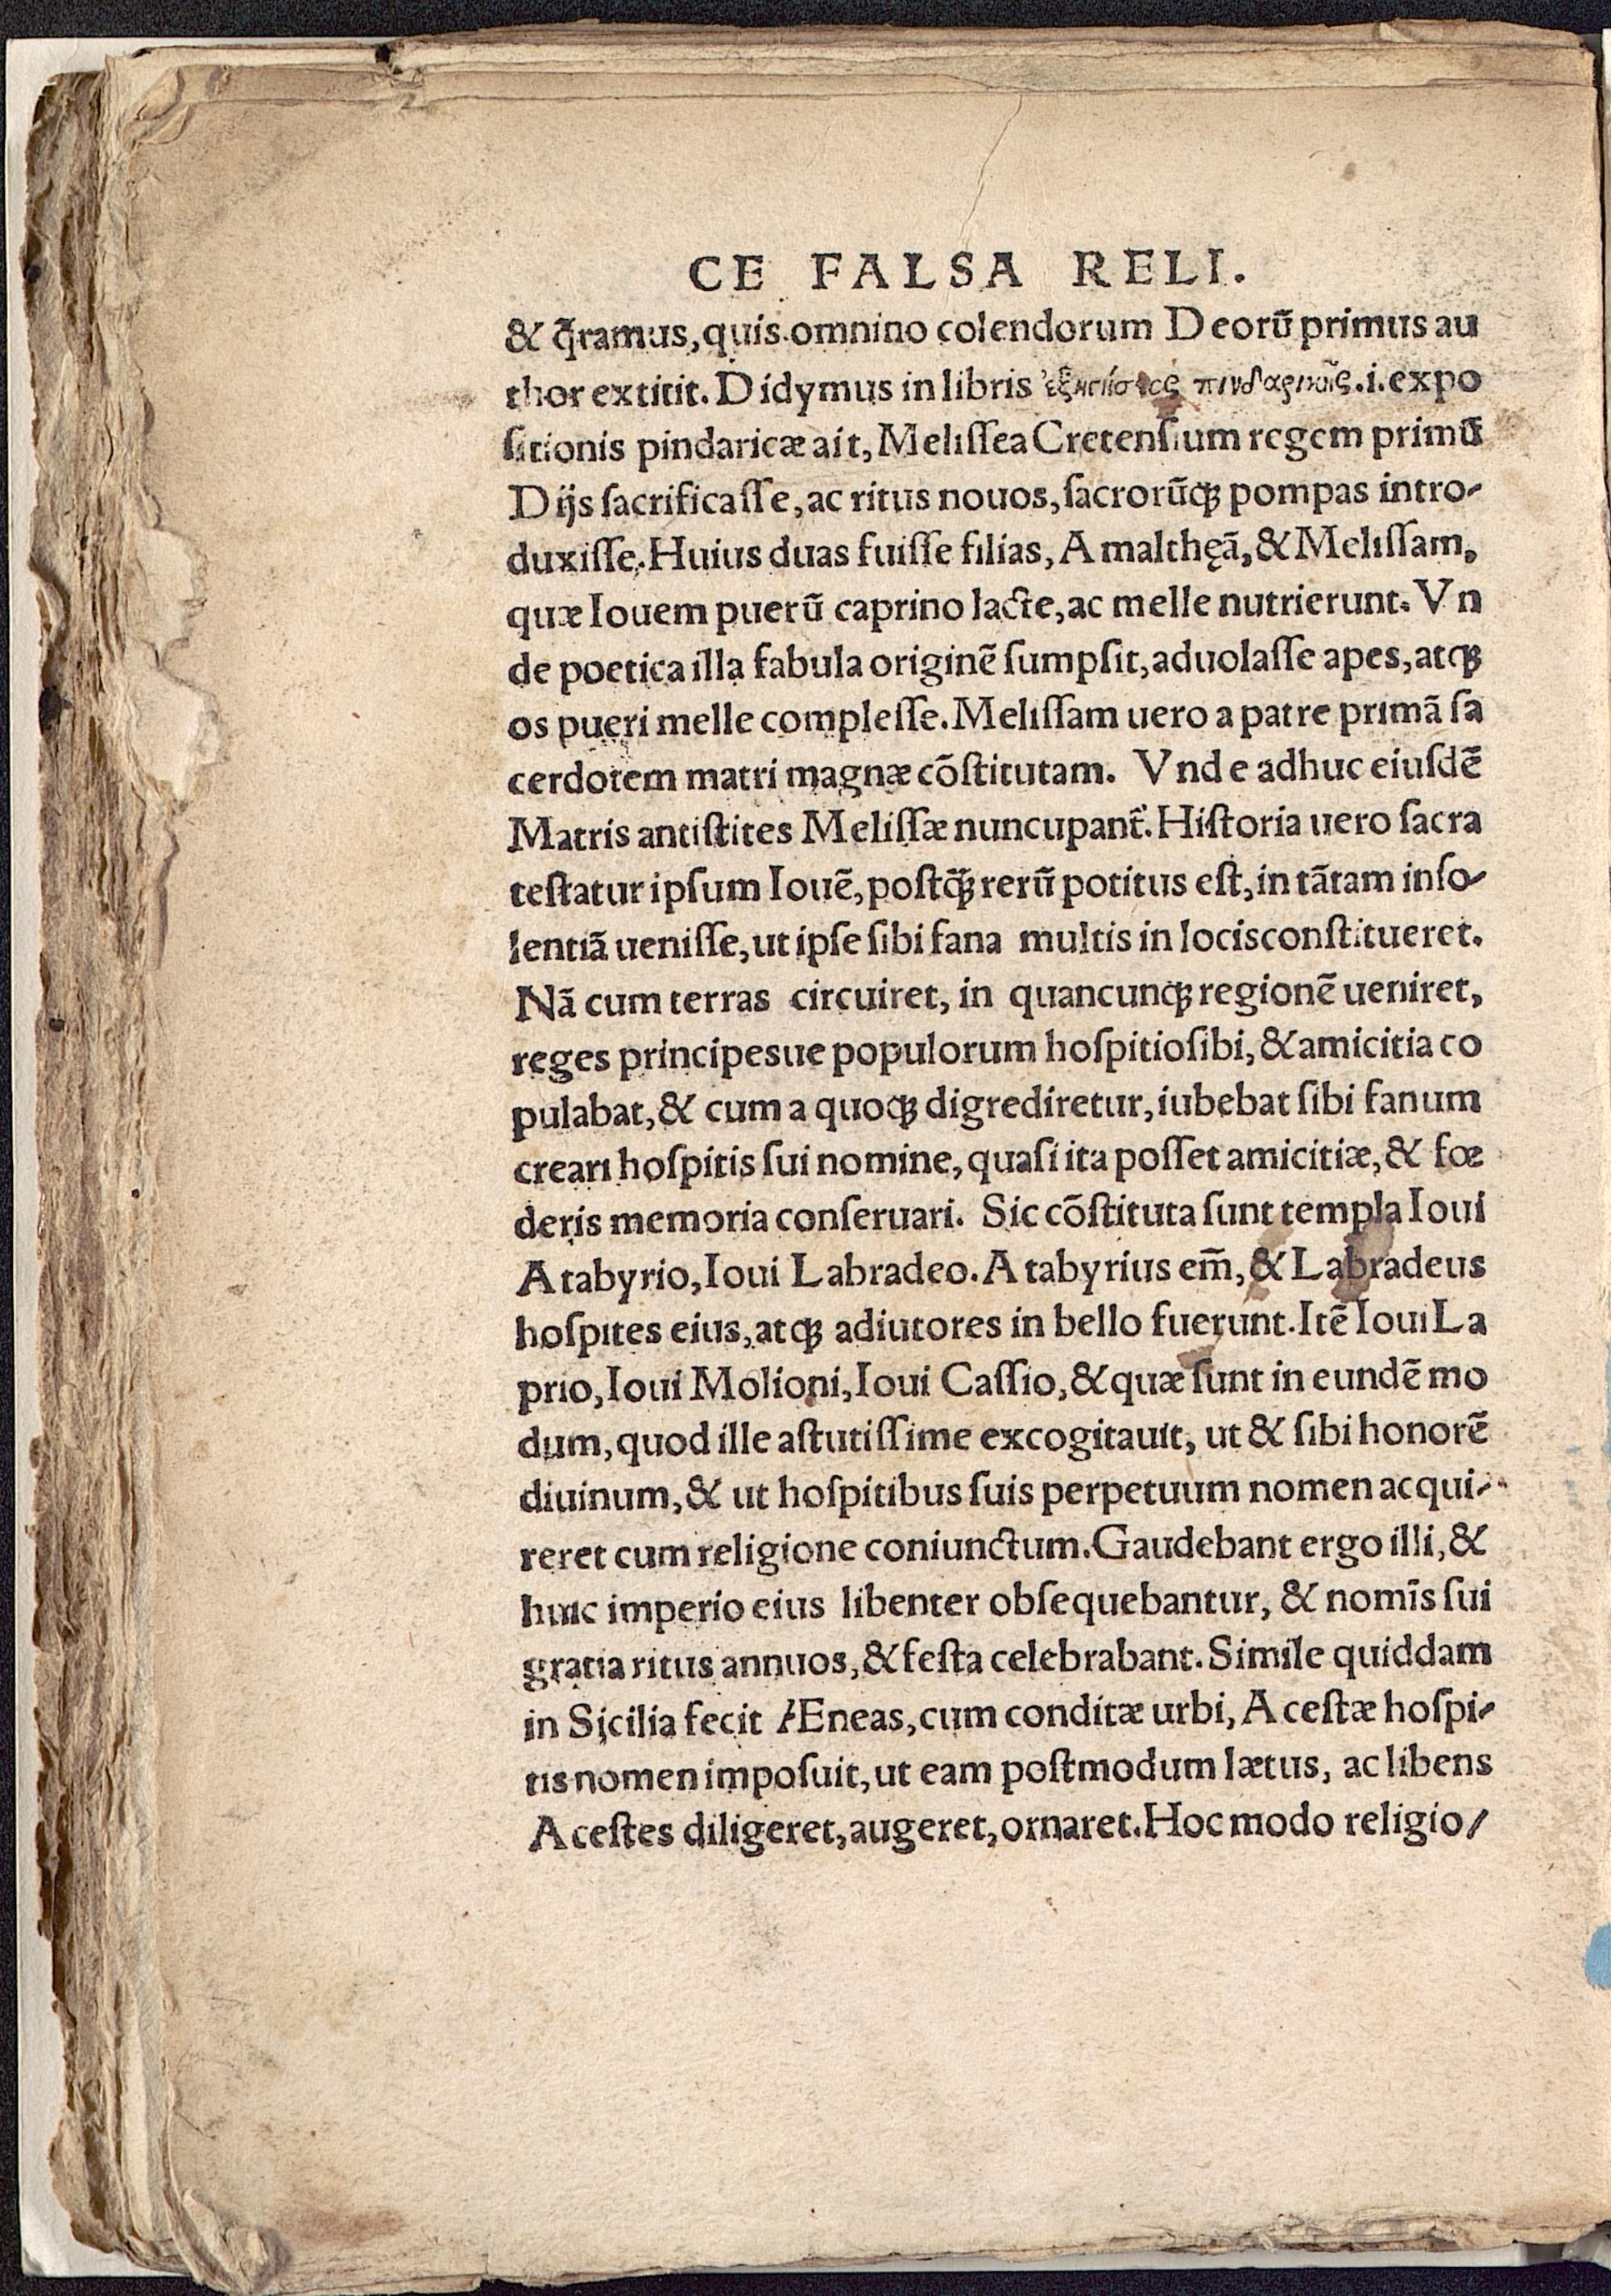 CE FALSA RELI.
& q̃ramus, quis omnino colendorum Deorū primus au
thor extitit. Didymus in libris πινδαρικῆς .i. expo
sitionis pindaricæ ait, Melisſea Cretenſium regem primū
Dijs ſacrificaſſe, ac ritus nouos, ſacrorūqꝫ pompas intro-
duxiſſe. Huius duas fuiſſe filias, Amalthęā, & Meliſſam,
quæ Iouem puerū caprino lacte, ac melle nutrierunt. Vn
de poetica illa fabula originē ſumpſit, aduolaſſe apes, atqꝫ
os pueri melle compleſſe. Meliſſam uero a patre primā ſa
cerdotem matri magnæ cōſtitutam. Vnde adhuc eiuſdē
Matris antiſtites Meliſſæ nuncupant̃. Hiſtoria uero ſacra
teſtatur ipſum Iouē, poſtq̄ꝫ rerū potitus eſt, in tātam inſo-
lentiā ueniſſe, ut ipſe ſibi fana multis in locis conſtitueret.
Nā cum terras circuiret, in quancunqꝫ regionē ueniret,
reges principesue populorum hoſpitio ſibi, & amicitia co
pulabat, & cum a quoqꝫ digrediretur, iubebat ſibi fanum
creari hoſpitis ſui nomine, quaſi ita poſſet amicitiæ, & fœ
deris memoria conſeruari. Sic cōſtituta ſunt templa Ioui
Atabyrio, Ioui Labradeo. Atabyrius em̄, & Labradeus
hoſpites eius, atqꝫ adiutores in bello fuerunt. Itē Ioui La
prio, Ioui Molioni, Ioui Caſſio, & quæ ſunt in eundē mo
dum, quod ille aſtutiſſime excogitauit, ut & ſibi honorē
diuinum, & ut hoſpitibus ſuis perpetuum nomen acqui-
reret cum religione coniunctum. Gaudebant ergo illi, &
huic imperio eius libenter obſequebantur, & nomīs ſui
gratia ritus annuos, & feſta celebrabant. Simile quiddam
in Sicilia fecit Æneas, cum conditæ urbi, Aceſtæ hoſpi-
tis nomen impoſuit, ut eam poſtmodum lætus, ac libens
Aceſtes diligeret, augeret, ornaret. Hoc modo religio/